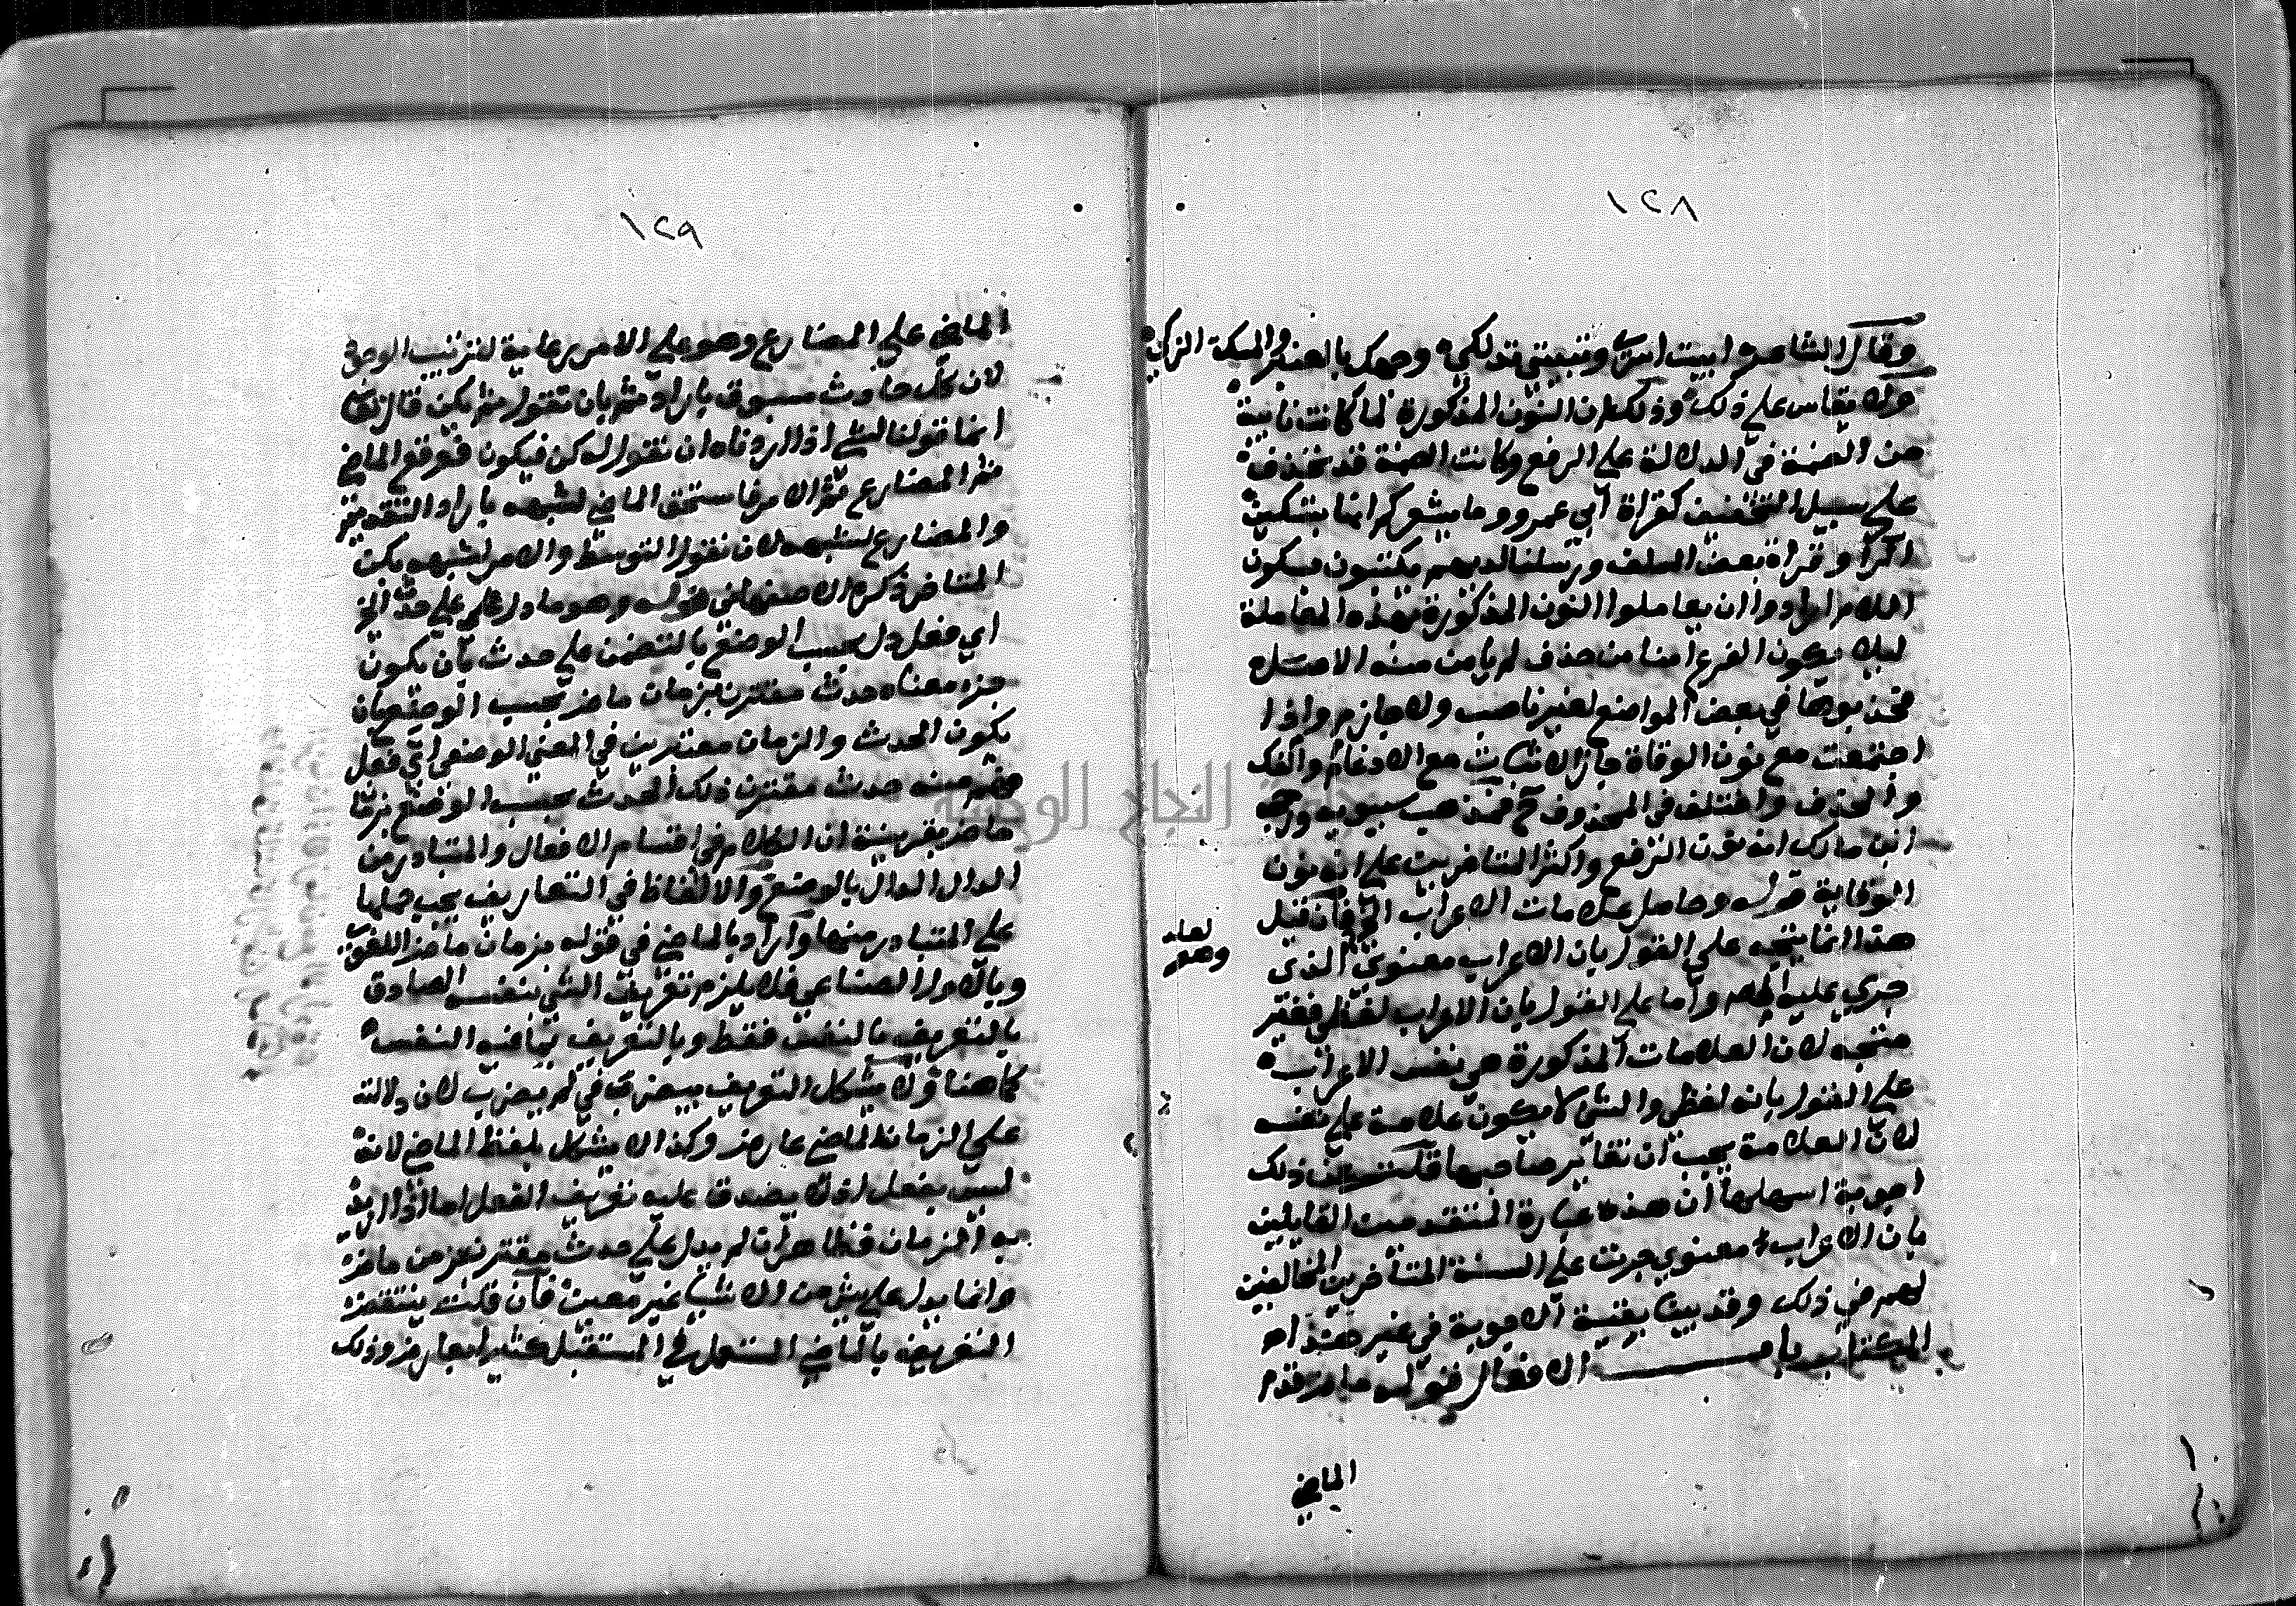 ١٢٨
وقال الشاعر ابيت اسري وتبيتي تدلكي وجهك بالعنبر والمسك الزكي
ولا يقاس على ذلك وذلك ان النون المذكورة لما كانت نايبة
عن الضمة في الدلالة على الرفع وكانت الضمة قد تحذف
على سبيل التخفيف كقراة ابي عمرو وما يشعركم انها بتسكين
الرا وقراة بعض السلف ورسلنا لديهم يكتبون بسكون
اللام ارادوا ان يعاملوا النون المذكورة بهذه المعاملة
ليلا يكون الفرع امنا من حذف لم يامن منه الاصل
فحذفوها في بعض المواضع لغير ناصب ولا جازم واذا
اجتمعت مع نون الوقاة جاز الاثبات مع الادغام والفك
والحذف واختلف في المحذوف ح فمذهب سيبويه ورجحه
ابن مالك انه نون الرفع واكثر المتاخرين على انه نون
الوقاية قوله وحاصل علامات الاعراب الخ فان قيل
هذا انما يتجه على القول بان الاعراب معنوي الذي
لعله وهو
جري عليه المص واما على القول بان الاعراب لفظي فغير
متجه لان العلامات المذكورة هي نفس الاعراب
على القول بانه لفظي والشي لا يكون علامة على نفسه
لان العلامة يجب ان تغاير صاحبها قلت عن ذلك
اجوبة اسهلها ان هذه عبارة المتقدمين القايلين
بان الاعراب معنوي جرت على السنة المتأخرين المخالفين
لهم في ذلك وقد بينا بقية الاجوبة في غير هذا
الكتاب باب الافعال قوله ماض قدم
الماضي
١٢٩
الماضي على المضارع وهو على الامر رعاية لترتيب الوجود
لان كل حادث مسبوق بارادته بان تقول ثم يكن قال تعالى
انما قولنا لشي اذا اردناه ان نقول له كن فيكون فوقع الماضي
ثم المضارع ثم الامر فاستحق الماضي لشبهه باراد التقديم
والمضارع لشبهه لان نقول التوسط والامر لشبهه بكن
المتاخر ذكره الاصفهاني قوله وهو ما دل على حدث الخ
اي فعل دل بحسب الوضع بالتضمن على حدث بان يكون
جزء معناه حدث مقترن بزمان ماض بحسب الوضع بان
يكون الحدث والزمان معتبرين في المعنى الوضعي اي فعل
حدث مقترن ذلك الحدث بحسب الوضع بزمان
ماض بقرينة ان الكلام في اقسام الافعال والمتبادر من
الدال الدال بالوضع والالفاظ في التعاريف يجب حملها
على المتبادر منها واراد بالماضي في قوله بزمان ماض اللغوي
وبالاول الصناعي فلا يلزم تعريف الشي بنفسه الصادق
بالتعريف بالنفس فقط وبالتعريف بما فيه النفس
كما هنا ولا يشكل التعريف بيضرب في لم يضرب لان دلالته
على الزمان الماضي عارض وكذا لا يشكل بلفظ الماضي لانه
ليس بفعل اذ لا يصدق عليه تعريف الفعل اما اذا اريد
به الزمان فظاهر ان لم يدل على حدث مقترن بزمن ماض
وانما يدل على شي من الاشيا غير معين فان قلت ينتقض
التعريف بالماضي المستعمل في المستقبل كثيرا بعارض وذلك